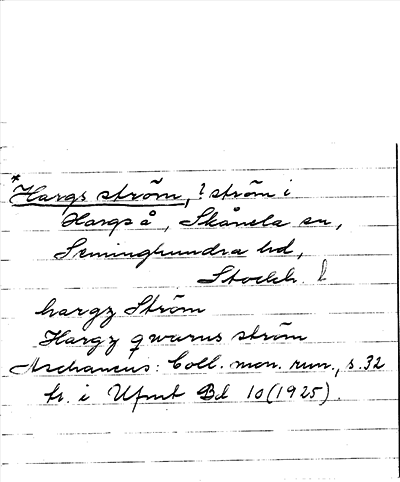 *Hargs ström, ? ström i
Hargs å, Skånela sn,
Seminghundra hd,
Stockh. l
hargz Ström
Hargz qwarns ström
Aschaneus: Coll. mon. run., s. 32
tr. i Ufmt Bd 10 (1925).